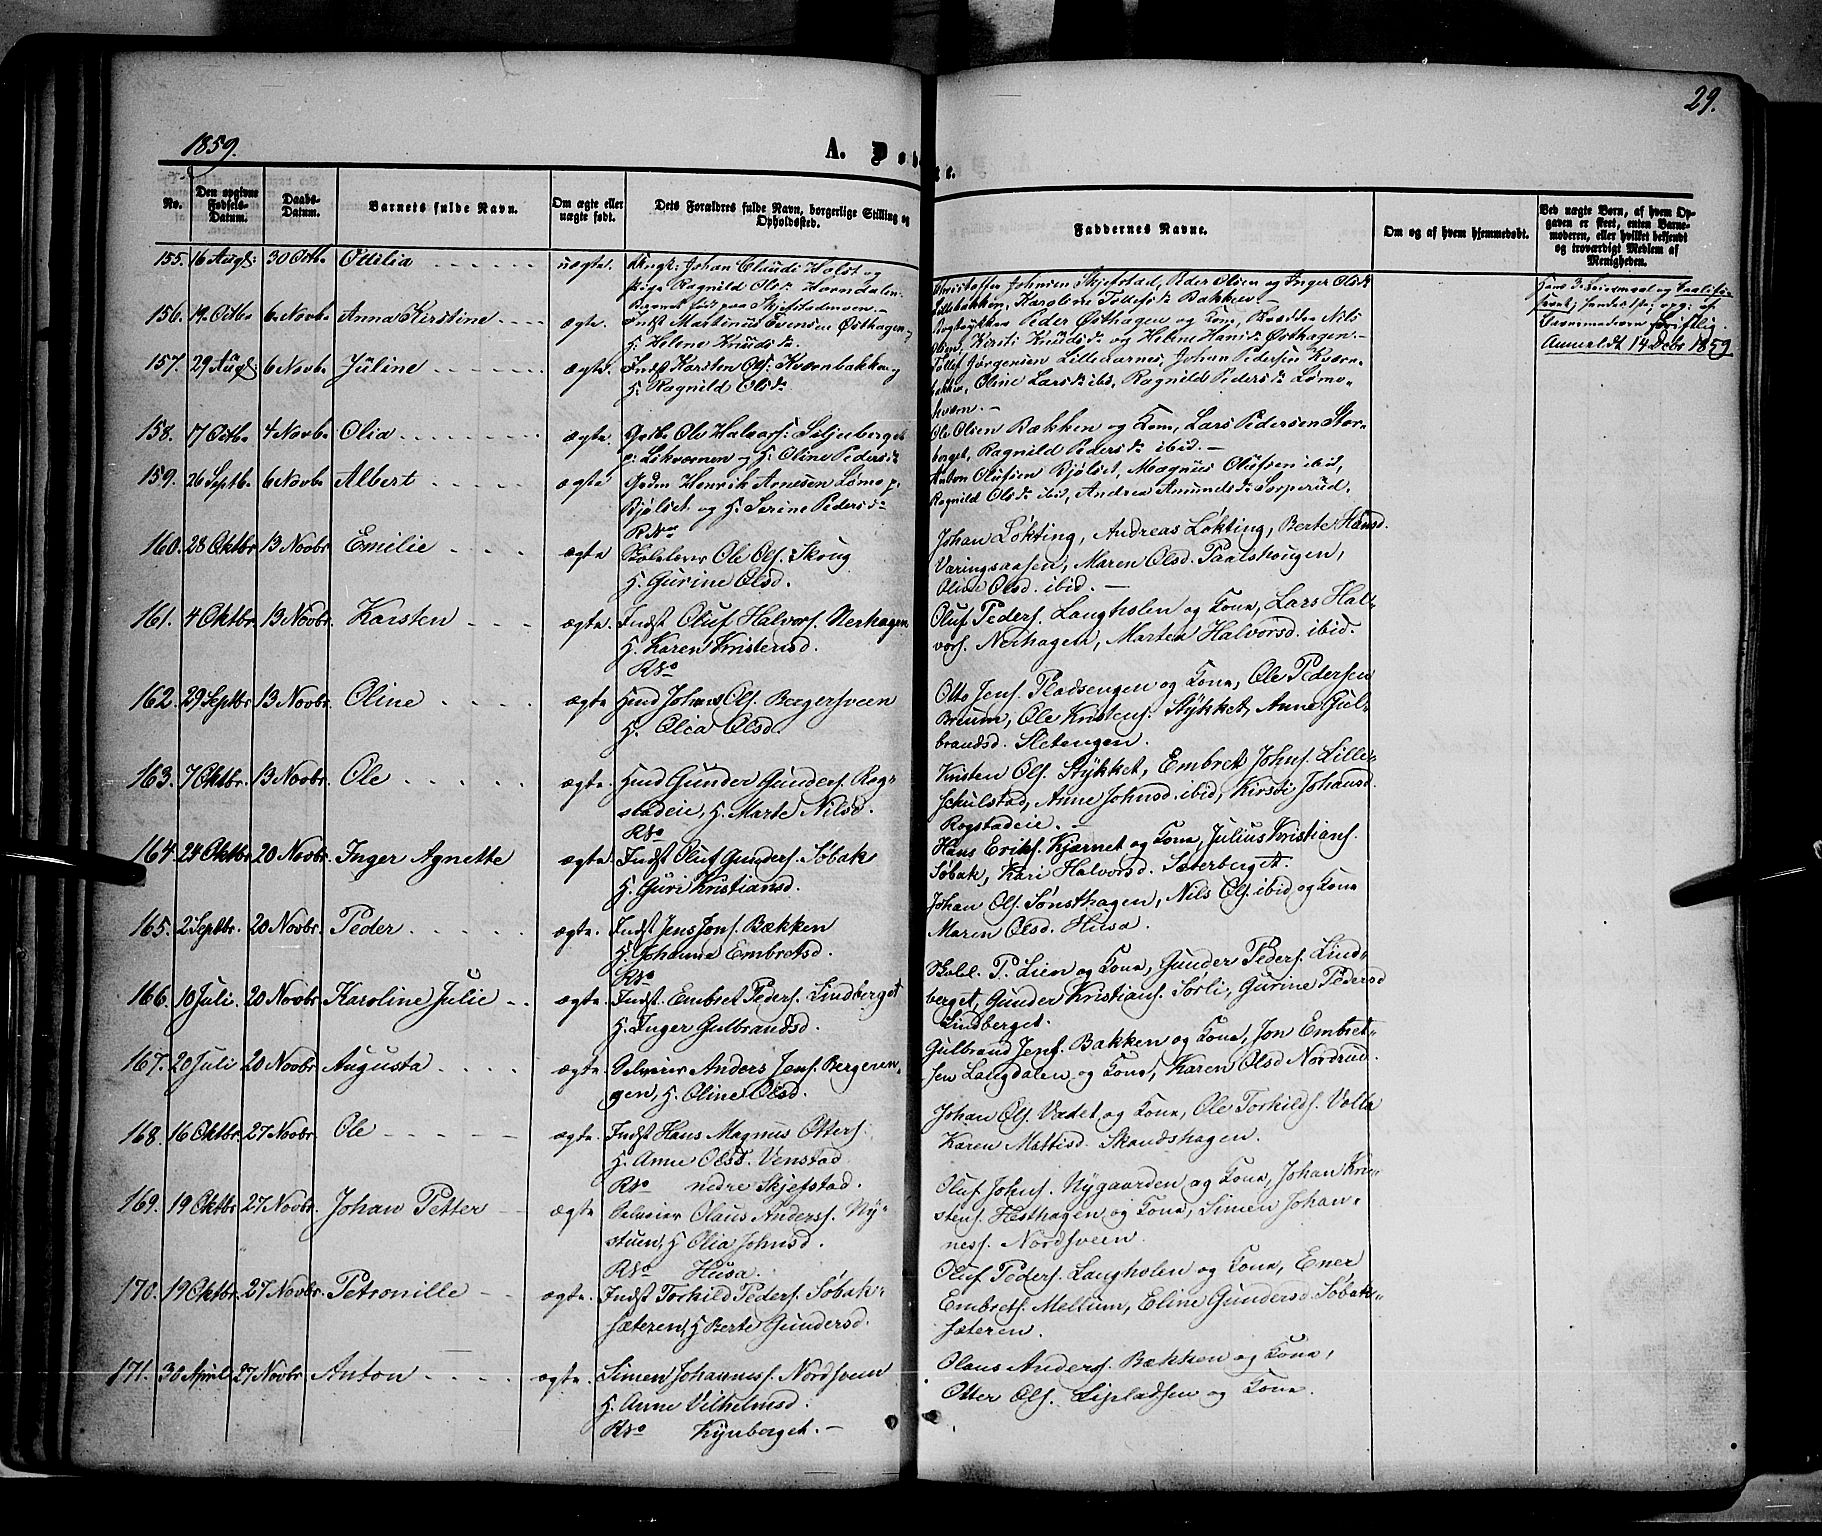 29.
1859.
A. Døbte.
No.
Den opgivne Fødsels-Datum.
Daabs-Datum.
Barnets fulde Navn.
Om ægte eller uægte født.
Dets Forældres fulde Navn, borgerlige Stilling og Opholdssted.
Faddernes Navne.
Om og af hvem hjemmedøbt.
Ved uægte Børn, af hvem Opgaven er skeet, enten Barnemoderen, eller hvilket bekjendt og troværdigt Medlem af Menigheden.
155. 16 Aug: 30 Octb. Ottilia uægte. Ungk: Johan Claudi Holst og
pige Ragnild Olsd. Horndalen
Barnet født paa Skjefstadmoen.
Christoffer Johnsen Skjefstad, Peder Olsen og Inger Olsd.
Lillebakken, Karoline Tollefsd. Bakken
opg: af
Barnemoderen skriftlig
Anmeldt 14 Debr 1859
156. 14 Octb. 6 Novb. Anna Kirstine ægte. Indst Martinus Evensen Østhagen
H. Helene Knudsd.
Peder Østhagen og Kone, Nils
Olsen, Kirsti Knudsd. og Helene Hansd. Østhagen.
157. 29 Aug: 6 Novb. Juline ægte. Indst Karsten Ols: Kværnbakken
H. Ragnild Olsd.
Tollef Jørgensen Lilleaarnes, Johan Pedersen Kværn-
bakken, Oline Larsd. ibd, Ragnild Pedersd. Lømo-
kværn.
158. 17 Octb. 4 Novb. Olia ægte. Ole Halvors: Siljuberget
og H. Oline Pedersd.
Ole Olsen Bækken og Kone, Lars Pedersen Stor-
berget, Ragnild Pedersd. ibid.
159. 26 Septb. 6 Novb. Albert ægte Henrik Arnesen Lømo p.
Bjølset og H. Serine Pedersd.
Anton Olufsen Bjølset, Magnus Olufsen ibid,
Ragnild Olsd. ibid, Andrea Amundsd. Sorperud.
160. 28 Oktbr. 13 Novbr. Emilie ægte Skolelærer Ole Ols. Skoug
H. Gurine Olsd.
Johan Løkting, Andreas Løkting, Berte Hansd.
Væringsaasen, Maren Olsd. Paalshougen,
Oline Olsd. ibid.
161. 4 Oktbr. 13 Novbr. Karsten ægte. Indst Oluf Halvors. Nerhagen
H. Karen Kristensd.
Oluf Peders. Langholen og Kone, Lars Hal-
vors. Nerhagen, Marten Halvorsd. ibid.
162. 29 Septbr. 13 Novbr. Oline ægte Johnes Ols. Bergersveen
H. Olia Olsd.
Otto Jens. Pladsengen og Kone, Ole Pedersen
Bruum, Ole Kristens. Stykket, Anne Gul-
brandsd. Sletengen.
163. 7 Oktbr. 13 Novbr. Ole ægte. Gunder Gunders. Rog-
stadeie, H. Marte Nilsd.
Kristen Ols. Stykket, Embret Johns. Lille-
Schulstad, Anne Johnsd. ibid, Kirsti Johansd.
Rogstadeie.
164. 24 Oktbr. 20 Novbr. Inger Agnette ægte. Indst Oluf Gunders. Søbak
H. Guri Kristiansd.
Hans Eriks. Kjærnet og Kone, Julius Kristians.
Søbak, Kari Halvorsd. Sæterberget.
165. 2 Septbr. 20 Novbr. Peder ægte. Indst Jens Jons. Bækken
H. Johanna Embretsd.
Johan Ols. Sønsthagen, Nils Ols. ibid og Kone
Maren Olsd. Husa
166. 10 Juli 20 Novbr. Karoline Julie ægte Indst. Embret Peders. Lindberget
H. Inger Gulbrandsd.
Skolel. P. Lien og Kone, Gunder Peders. Lind-
berget, Gunder Kristians. Sørli, Gurine Pedersd
Lindberget.
167. 20 Juli 20 Novbr. Augusta ægte Selveier Anders Jens. Bergenen-
gen, H. Oline Olsd.
Gulbrand Jens. Bakken og Kone, Jon Embret-
sen Langdalen og Kone, Karen Olsd Nordrud.
168. 16 Oktbr. 27 Novbr. Ole ægte. Indst Hans Magnus Otters.
H. Anne Olsd. Venstad
nedre Skjefstad.
Johan Ols. Vædet og Kone, Ole Torkilds. Volla
Karen Mattisd. Skandshagen.
169. 19 Oktbr. 27 Novbr. Johan Petter ægte Selveier Olaus Anders. Ny-
stuen, H Olia Johnsd.
Husa.
Oluf Johns. Nygaarden og Kone, Johan Kri-
stens. Hesthagen og Kone, Simen Johan-
ness. Nordsveen.
170. 19 Oktbr. 27 Novbr. Petronille ægte. Indst Torkild Peders. Søbak-
sæteren, H Berte Gundersd.
Oluf Peders. Langholen og Kone, Ener
Embrets. Mellum, Eline Gundersd. Søbak-
sæteren.
171. 30 April 27 Novbr Anton ægte. Simen Johanness. Nordsveen
H. Anne Vilhelmsd.
Kynberget.
Olaus Anders. Bækken og Kone,
Otter Ols. Sipladsen og Kone.